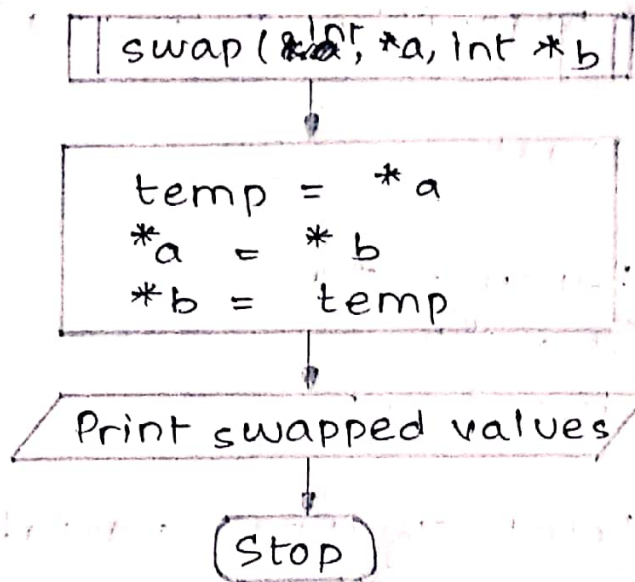 swap (int *a, int *b
temp = *a
*a = *b
*b = temp
Print swapped values
Stop